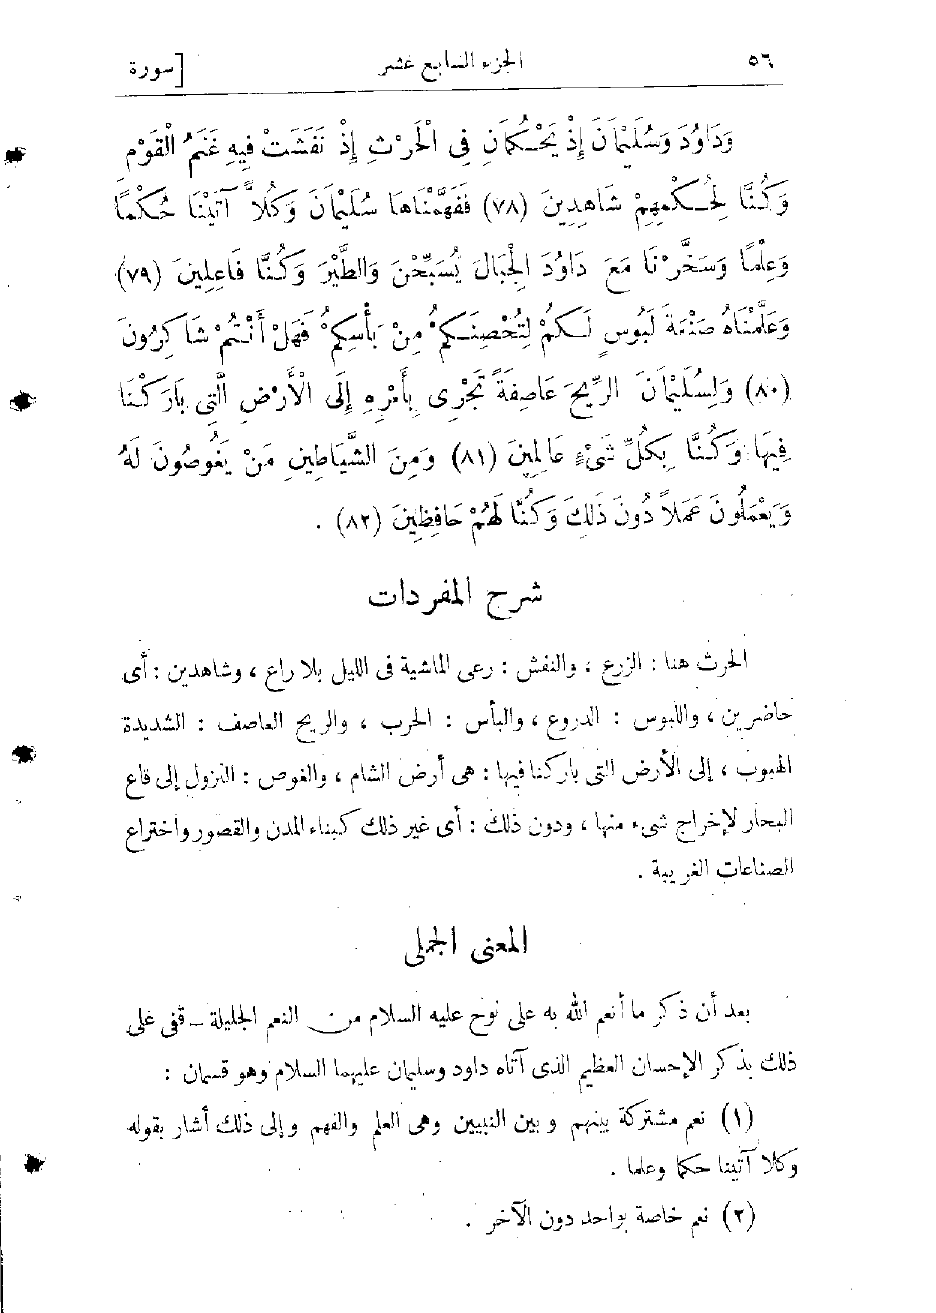 ٥٦ الجزء السابع عشر [سورة
وَدَاوُدَ وَسُلَيْمَانَ إِذْ يَحْكُمَانِ فِى الْحَرْثِ إِذْ نَفَشَتْ فِيهِ غَنَمُ الْقَوْمِ
وَكُنَّا لِحُكْمِهِمْ شَاهِدِينَ (٧٨) فَفَهَّمْنَاهَا سُلَيْمَانَ وَكُلاًّ آتَيْنَا حُكْمًا
وَعِلْمًا وَسَخَّرْنَا مَعَ دَاوُدَ الْجِبَالَ يُسَبِّحْنَ وَالطَّيْرَ وَكُنَّا فَاعِلِينَ (٧٩)
وَعَلَّمْنَاهُ صَنْعَةَ لَبُوسٍ لَكُمْ لِتُحْصِنَكُمْ مِنْ بَأْسِكُمْ فَهَلْ أَنْتُمْ شَاكِرُونَ
(٨٠) وَلِسُلَيْمَانَ الرِّيحَ عَاصِفَةً تَجْرِى بِأَمْرِهِ إِلَى الْأَرْضِ الَّتِى بَارَكْنَا
فِيهَا وَكُنَّا بِكُلِّ شَىْءٍ عَالِمِينَ (٨١) وَمِنَ الشَّيَاطِينِ مَنْ يَغُوصُونَ لَهُ
وَيَعْمَلُونَ عَمَلاً دُونَ ذَلِكَ وَكُنَّا لَهُمْ حَافِظِينَ (٨٢) .
شرح المفردات
الحرث هنا : الزرع ، والنفش : رعى الماشية فى الليل بلا راع ، وشاهدين : أى
حاضرين ، واللبوس : الدروع ، والبأس : الحرب ، والريح العاصف : الشديدة
الهبوب ، إلى الأرض التى باركنا فيها : هى أرض الشام ، والغوص : النزول إلى قاع
البحار لإخراج شىء منها ، ودون ذلك : أى غير ذلك كبناء المدن والقصور واختراع
الصناعات الغريبة .
المعنى الجملى
بعد أن ذكر ما أنعم الله به على نوح عليه السلام من النعم الجليلة – قفى على
ذلك بذكر الإحسان العظيم الذى آتاه داود وسليمان عليهما السلام وهو قسمان :
(١) نعم مشتركة بينهم وبين النبيين وهى العلم والفهم وإلى ذلك أشار بقوله
وكلا آتينا حكما وعلما .
(٢) نعم خاصة بواحد دون الآخر .